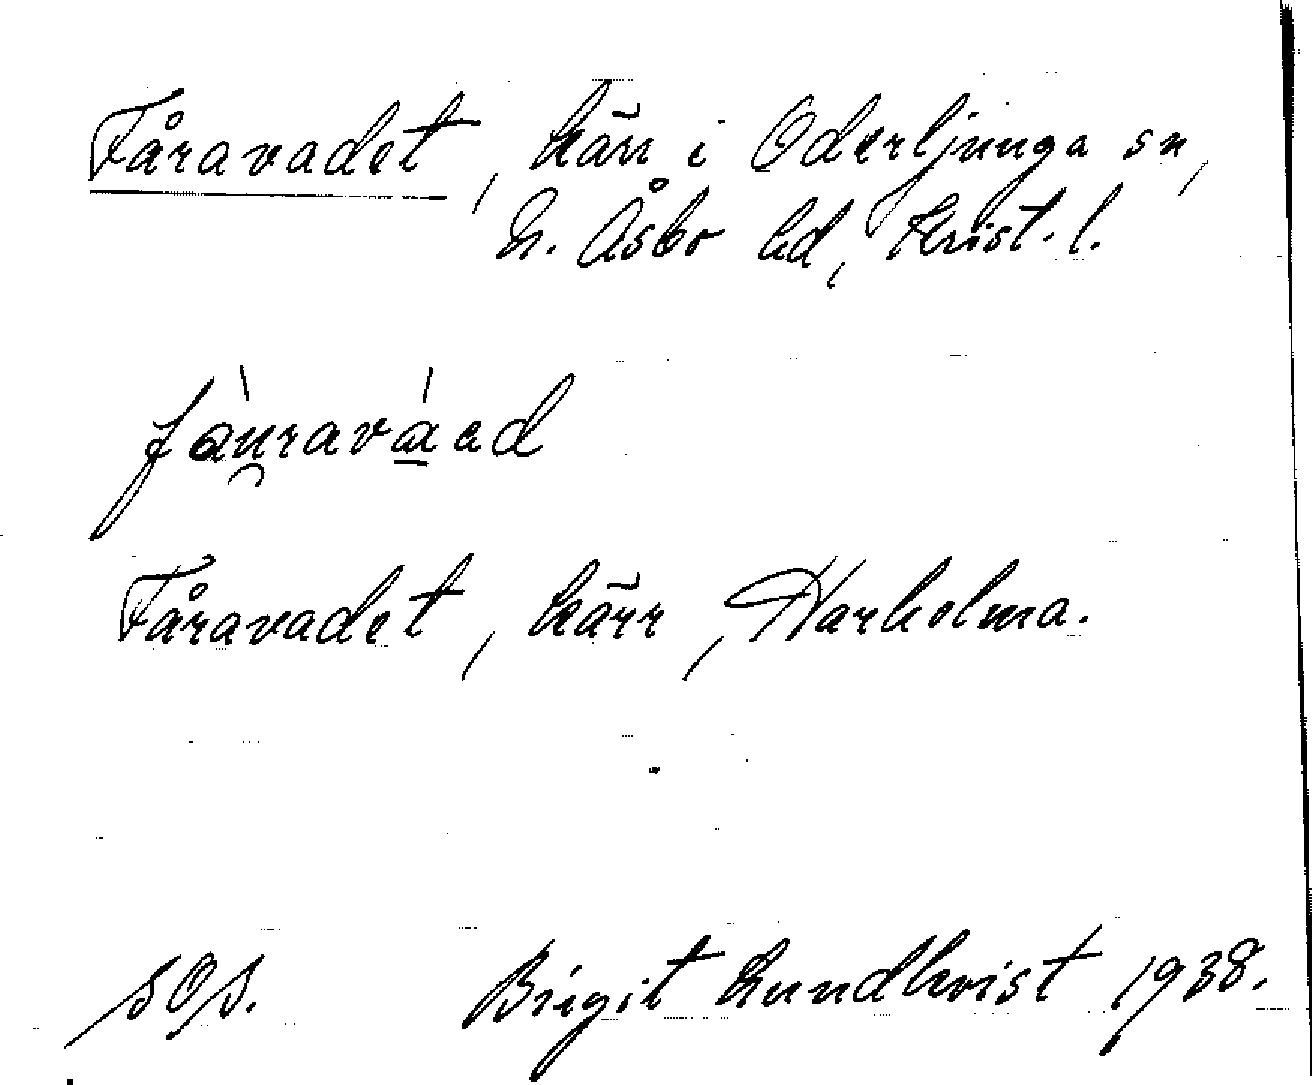 Fåravadet, kärr i Oderljunga sn,
N. Åsbo hd, Krist. l.
fåu̯ravá̱ad
Fåravadet, kärr, Harholma.
SOS. Birgit Lundkvist 1938.